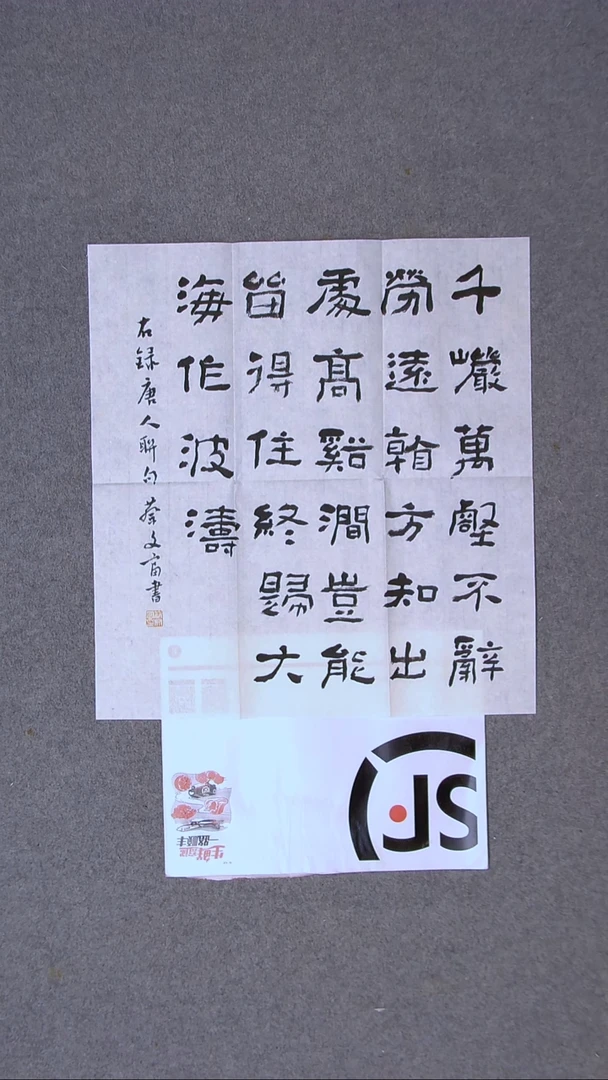 千巖萬壑不辭
勞遠觀方知出
處高谿澗豈能
留得住終歸大
海作波濤
右録唐人聯句蔡文富書
SF